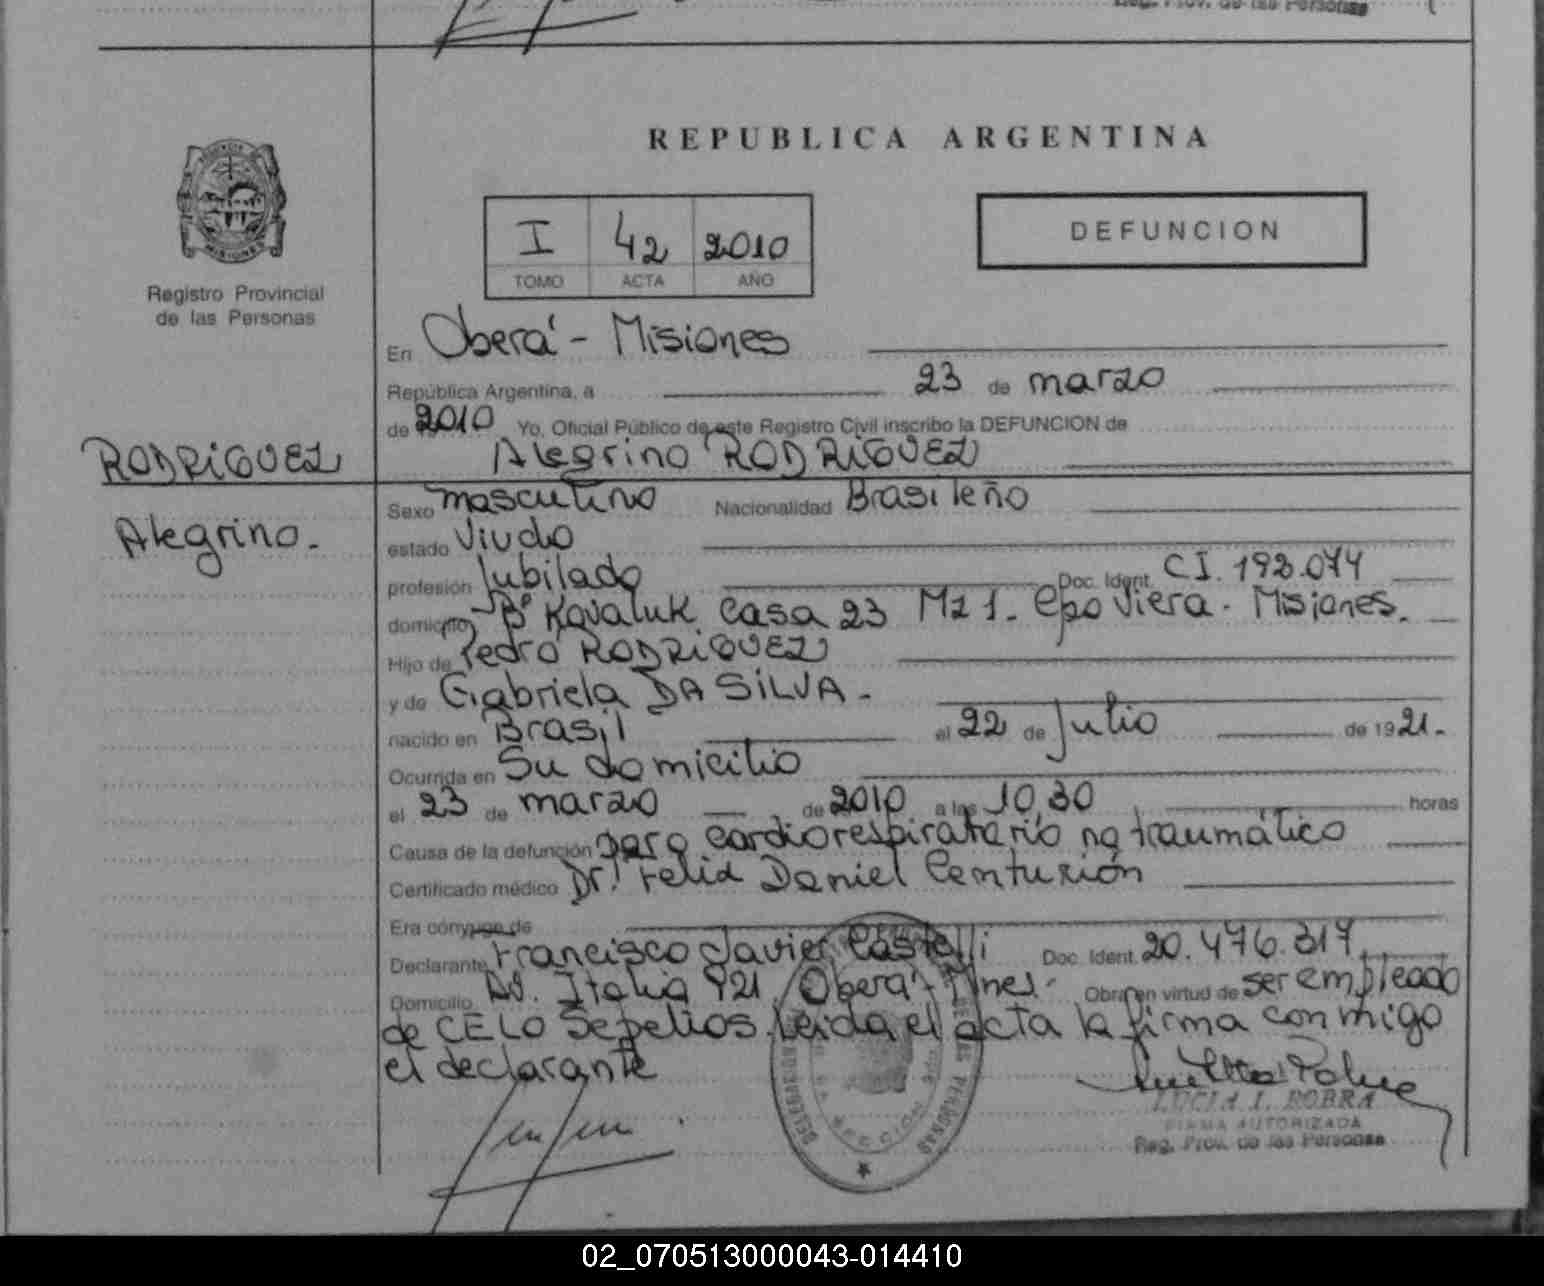 Reg. Prov. de las Personas
REPUBLICA ARGENTINA
I 42 2010
TOMO ACTA AÑO
DEFUNCION
PROVINCIA DE MISIONES
Registro Provincial
de las Personas
En Oberá - Misiones
República Argentina, a 23 de marzo
de 2010 Yo, Oficial Público de este Registro Civil inscribo la DEFUNCION de
RODRIGUEZ
Alegrino RODRIGUEZ
Alegrino.-
Sexo masculino Nacionalidad Brasileño
estado Viudo
profesión Jubilado Doc. Ident. C.I. 193.074
domicilio Bº Kovaluk Casa 23 Mz 1. Cpo Viera. Misiones.
Hijo de Pedro RODRIGUEZ
y de Gabriela DA SILVA.-
nacido en Brasil el 22 de Julio de 1921.
Ocurrida en Su domicilio
el 23 de marzo de 2010 a las 10,30 horas
Causa de la defunción paro cardiorespiratorio no traumático
Certificado médico Dr. Felix Daniel Centurión
Era cónyuge de
Declarante Francisco Javier Castelli Doc. Ident. 20.476.317
Domicilio Av. Italia 921 Oberá - Mnes. Obra en virtud de ser empleado
de CELO Sepelios. Leida el acta la firma conmigo
el declarante
LUCIA I. BOBRA
FIRMA AUTORIZADA
Reg. Prov. de las Personas
02_070513000043-014410